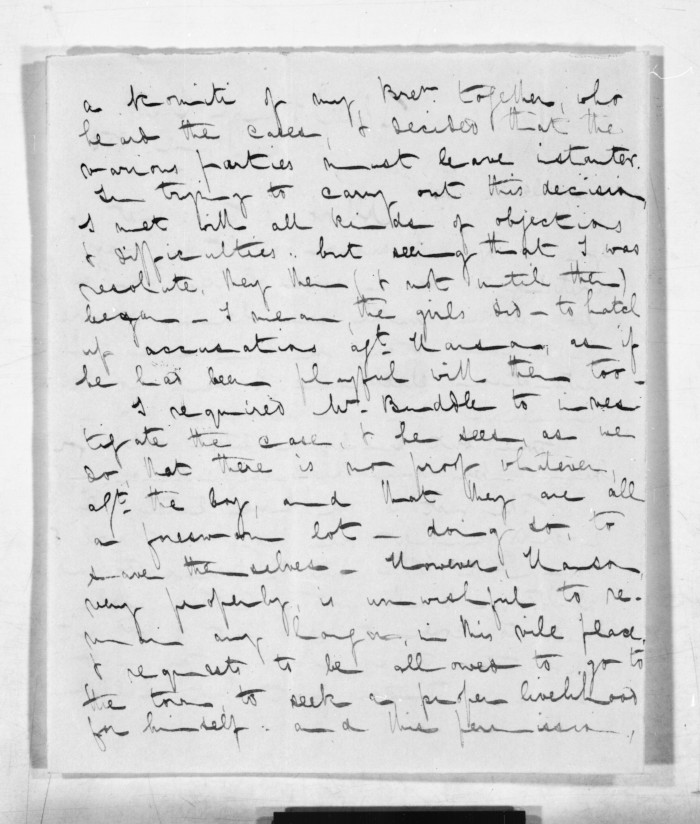 a Komiti of my Bren. together, who
heard the cases, & decided that the
various parties must leave instanter.
In trying to carry out this decision,
I met with all kinds of objections
& difficulties: but seeing that I was
resolute, they then (& not until then)
began - I mean, the girls did - to hatch
up accusations agt. as if
he had been playful with them too -
I required Mr. Baddle to inves
tigate the case, & he sees, as we
do, that there is no proof whatever,
agt. the boy, and that they are all
a foresworn lot - doing so, to
save themselves - However,
very properly, is unwishful to re-
main any longer, in this vile place,
& requests to be allowed to go to
the town, to seek a proper livelihood
for himself: and this permission,